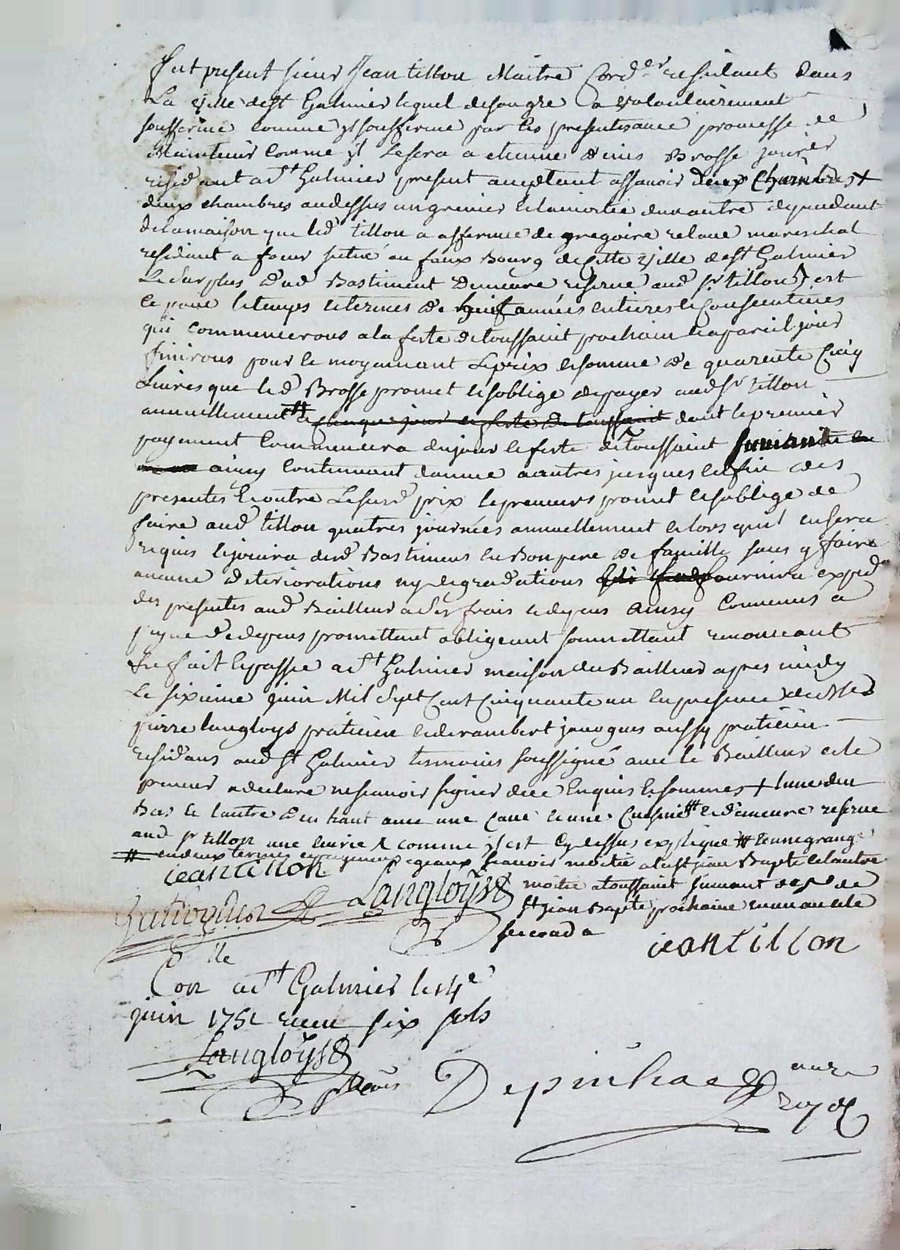 fut present sieur Jean tillon Maitre Cord.er residant Dans
La ville de st Galmier lequel de son gre a volontairement
soufferme comme yl soufferme par Ces presentes avec promesse de
Maintenir comme yl Le sera a etienne denis Brosse
residant a st Galmier present acceptant assavoir deux Chambres +
deux chambres au dessus un grenier dependant
de la maison que led tillon a afferme de gregoire mareschal
resident a faux Bourg de cette ville de st Galmier
Le surplus dud Bastiment demeure reserve aud sr tillon est
ce pour le temps et termes de huit années entieres et Consecutives
qui commencerons a la feste de toussaint prochain et a pareil jour
finirons pour et moyennant Le prix et somme de quarente Cinq
Livres que led Brosse promet et soblige de payer aud sr tillon
annuellement # a chaque jour et feste de toussaint dont le premier
payement Commencera du jour et feste de toussaint
ainsy Continuant danne a autres jusques en fin des
presentes Et outre Le surd prix le preneur promet et soblige de
faire aud tillon quatres journées annuellement et lors quil en sera
requis et jouira desd Bastimens en Bon pere de famille sans y faire
aucune deteriorations ny degradations fournira exped.on
des presentes aud Bailleur a ses frais et depens ainsy Convenus a
peyne de depens promettant obligeant soumettant renonceant
fut fait et passe a st Galmier maison du Bailleur apres midy
Le sixieme juin Mil Sept Cent Cinquante un en presence de
pierre Langloys praticien et derambert jacques aussy praticien
residans aud st Galmier temoins soussigné avec le Bailleur et le
preneur a declare ne scavoir signer de ce Enquis et sommes + lune du
Bas et lautre den haut avec une Cave et une Cuisine et demeure reserve
aud sr tillon une Ecurie comme yl est Cy dessus explique # et une grange
# en deux termes et payemens egeaux scavoir moitie a la st jean Bapte et lautre
jean tillon
moitie a toussaint suivant
Langloys
st jean Bapte prochaine
second a
jean tillon
Con.lle
Con a st Galmier le 14e
juin 1751 recu six sols
Langloys
Depinhac